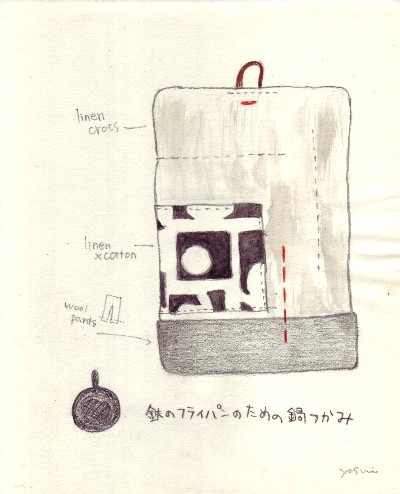 linen
cross
linen
×cotton
wool
pants
鉄のフライパンのための鍋つかみ